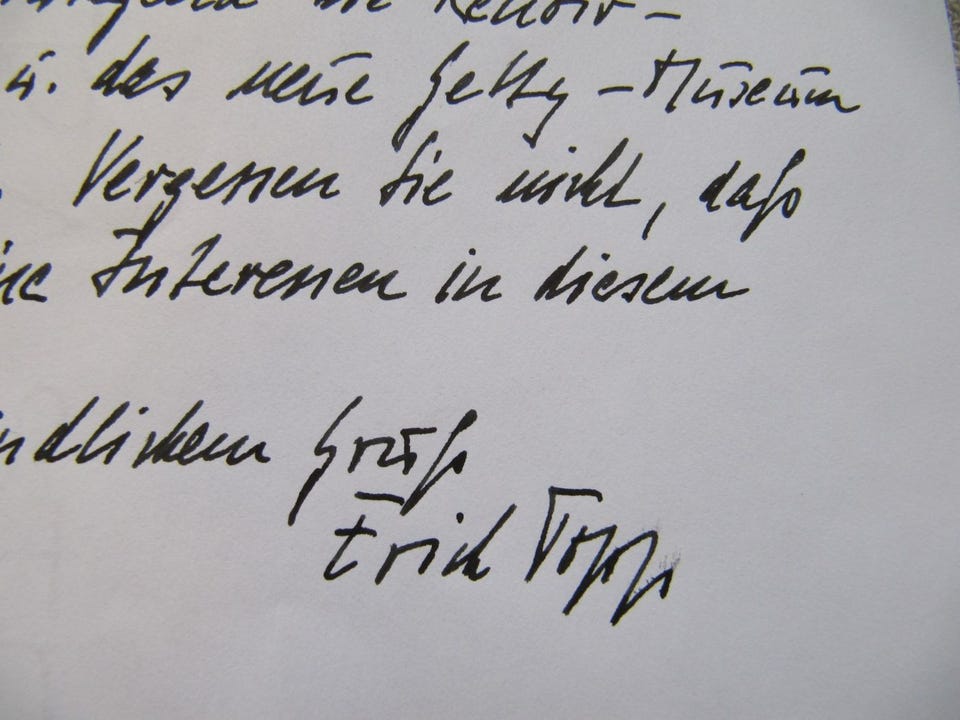 in Renoir-
u. das neue Getty-Museum
Vergessen Sie nicht, daß
Interessen in diesem
ndlichem Gruß
Erich Topp